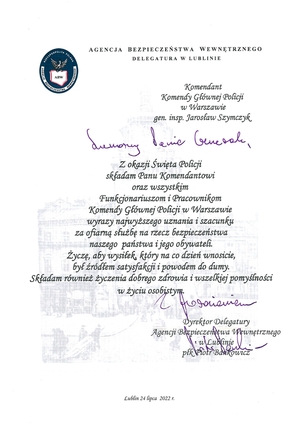 AGENCJA BEZPIECZEŃSTWA WEWNĘTRZNEGO
DELEGATURA W LUBLINIE
ABW
Komendant
Komendy Głównej Policji
w Warszawie
gen. insp. Jarosław Szymczyk
Z okazji Święta Policji
składam Panu Komendantowi
oraz wszystkim
Funkcjonariuszom i Pracownikom
Komendy Głównej Policji w Warszawie
wyrazy najwyższego uznania i szacunku
za ofiarną służbę na rzecz bezpieczeństwa
naszego państwa i jego obywateli.
Życzę, aby wysiłek, który na co dzień wnosicie,
był źródłem satysfakcji i powodem do dumy.
Składam również życzenia dobrego zdrowia i wszelkiej pomyślności
w życiu osobistym.
Dyrektor Delegatury
Agencji Bezpieczeństwa Wewnętrznego
w Lublinie
płk Piotr
Lublin 24 lipca 2022 r.